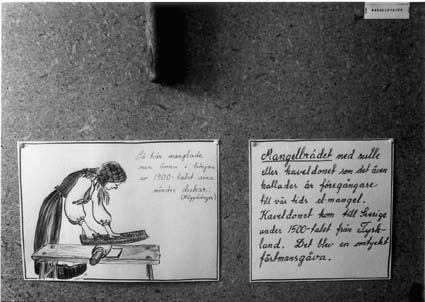 Så här manglade
man ännu i början
av 1900-talet sina
mindre dukar.
Mangelbrädet med rulle
eller kaveldonet som det även
kallades är föregångare
till vår tids el-mangel.
Kaveldonet kom till Sverige
under 1500-talet från Tysk-
land. Det blev en omtyckt
fästmansgåva.